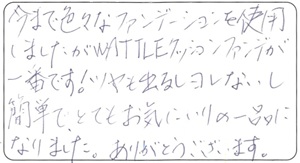 今まで色々なファンデーションを使用
しましたがWATTLEクッションファンデが
一番です!ツヤも出るしヨレないし
簡単で、とてもお気にいりの一品に
なりました。ありがとうございます。